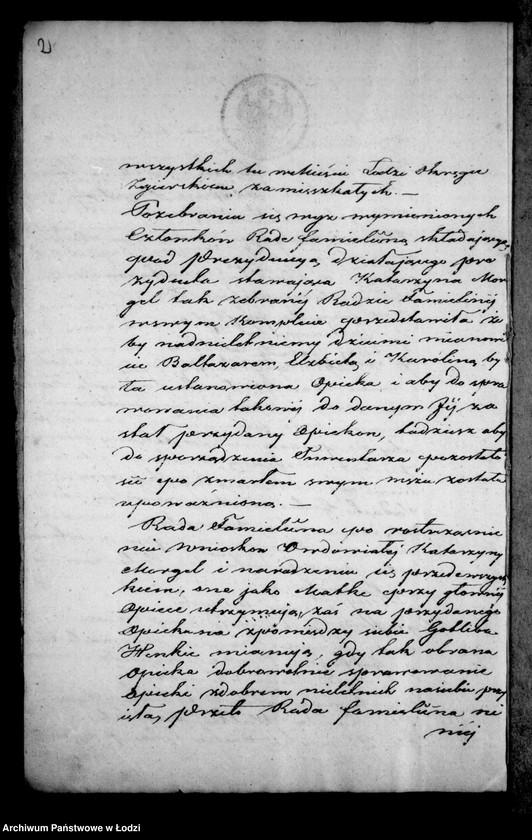 2
wszystkich tu w mieście Łodzi Okręgu
Zgierskim zamieszkałych. —
Po zebraniu się wyż wymienionych
Członków Radę familiiną składających
pod Prezydencyą działającego pre
zyduta stawająca Katarzyna Mor
gel tak zebranéj Radzie Familinéj
w swym komplecie przedstawiła że
by nadnieletniemy dziećmi mianowi
cie Baltazarem, Elzbietą i Karoliną by
ła ustanowiona opieka i aby do spra
wowania takowéj do danym Jéj zo
stał przydany opiekon, tudziesz aby
do sporządzenia Inwentarza pozostało
sci po zmarłem swym mężu została
upoważnioną. —
Rada Familiina po roztrząśnie
niu wniosków Owdowiałéj Katarzyny
Morgel i naradzeniu się przedewszyst
kiem, one jako Matkę przy głównéj
opiece utrzymują, zaś na przydanego
opiekuna z pomiędzy siebie Gottliba
Henke mianują, gdy tak obrana
opieka dobrowolnie sprawowanie
opieki z dobrem nieletnich na siebie przy
ięła, Przeto Rada familiina ni
niéj
Archiwum Państwowe w Łodzi